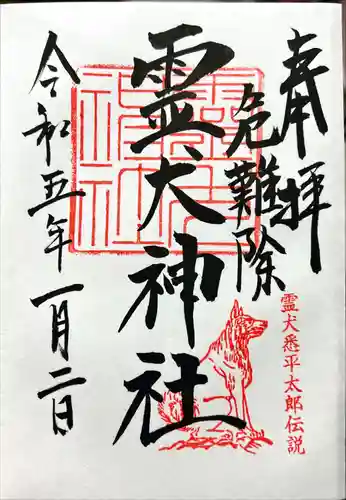 奉拝
危難除
霊犬悉平太郎伝説
霊犬神社
令和五年一月二日